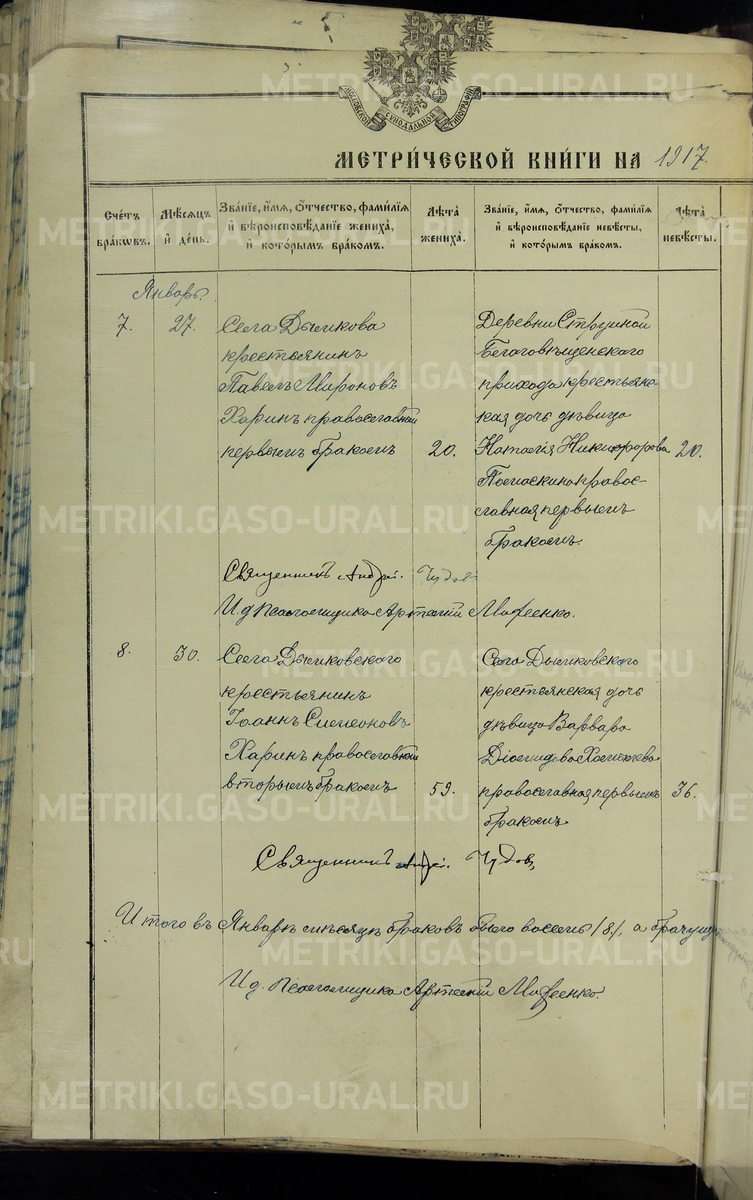 МОСКОВСКОЙ СѴНОДАЛЬНОЙ ТИПОГРАФІИ
МЕТРИ́ЧЕСКОЙ КНИ́ГИ НА 1917.
Сче́тъ бра́ковъ.
Мѣ́сяцъ и҆ де́нь.
Зва́нїе, и҆́мя, ѻ҆́тчество, фами́лїя
и҆ вѣроисповѣ́данїе жениха̀,
и҆ кото́рымъ бра́комъ.
Лѣ́та жениха̀.
Зва́нїе, и҆́мя, ѻ҆́тчество, фами́лїя
и҆ вѣроисповѣ́данїе невѣ́сты,
и҆ кото́рымъ бра́комъ.
Лѣ́та невѣ́сты.
Январь.
7.
27.
Села Дымкова
крестьянинъ
Павелъ Мироновъ
Харинъ православный
первымъ бракомъ
20.
Деревни
Благовѣщенскаго
прихода крестьянс-
кая дочь дѣвица
Никифорова
правос-
лавная первымъ
бракомъ.
20.
Священникъ Андрей Чудовъ
И д Псаломщика Артемій
8.
30.
Села Дымковскаго
крестьянинъ
Іоаннъ Симеоновъ
Харинъ православный
вторымъ бракомъ
59.
Села Дымковскаго
крестьянская дочь
дѣвица Варвара
Діомидова
православная первымъ
бракомъ
36.
Священникъ Андрей Чудовъ
Итого въ Январѣ мѣсяцѣ браковъ было восемь /8/, а
И д. Псаломщика Артемій
METRIKI.GASO-URAL.RU